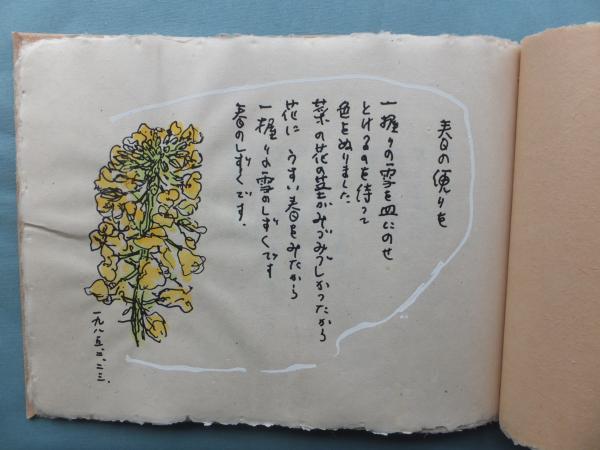 春の便りを
一握りの雪を皿にのせ
とけるのを待って
色をぬりました
菜の花の茎がみずみずしかったから
花に うすい春をみたから
一握りの雪のしずくです
春のしずくです.
一九八五、二、二三、